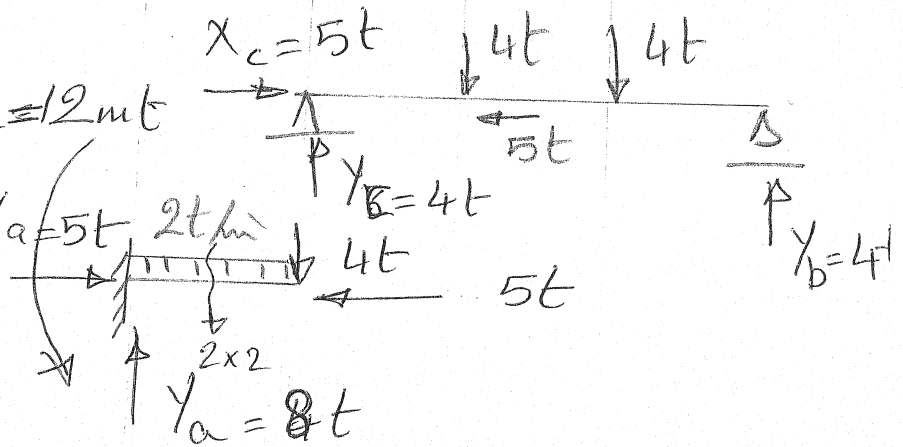 Xc=5t
4t
4t
=12mt
5t
Yc=4t
Yb=4t
a=5t
2t/m
4t
5t
2x2
Ya=8t